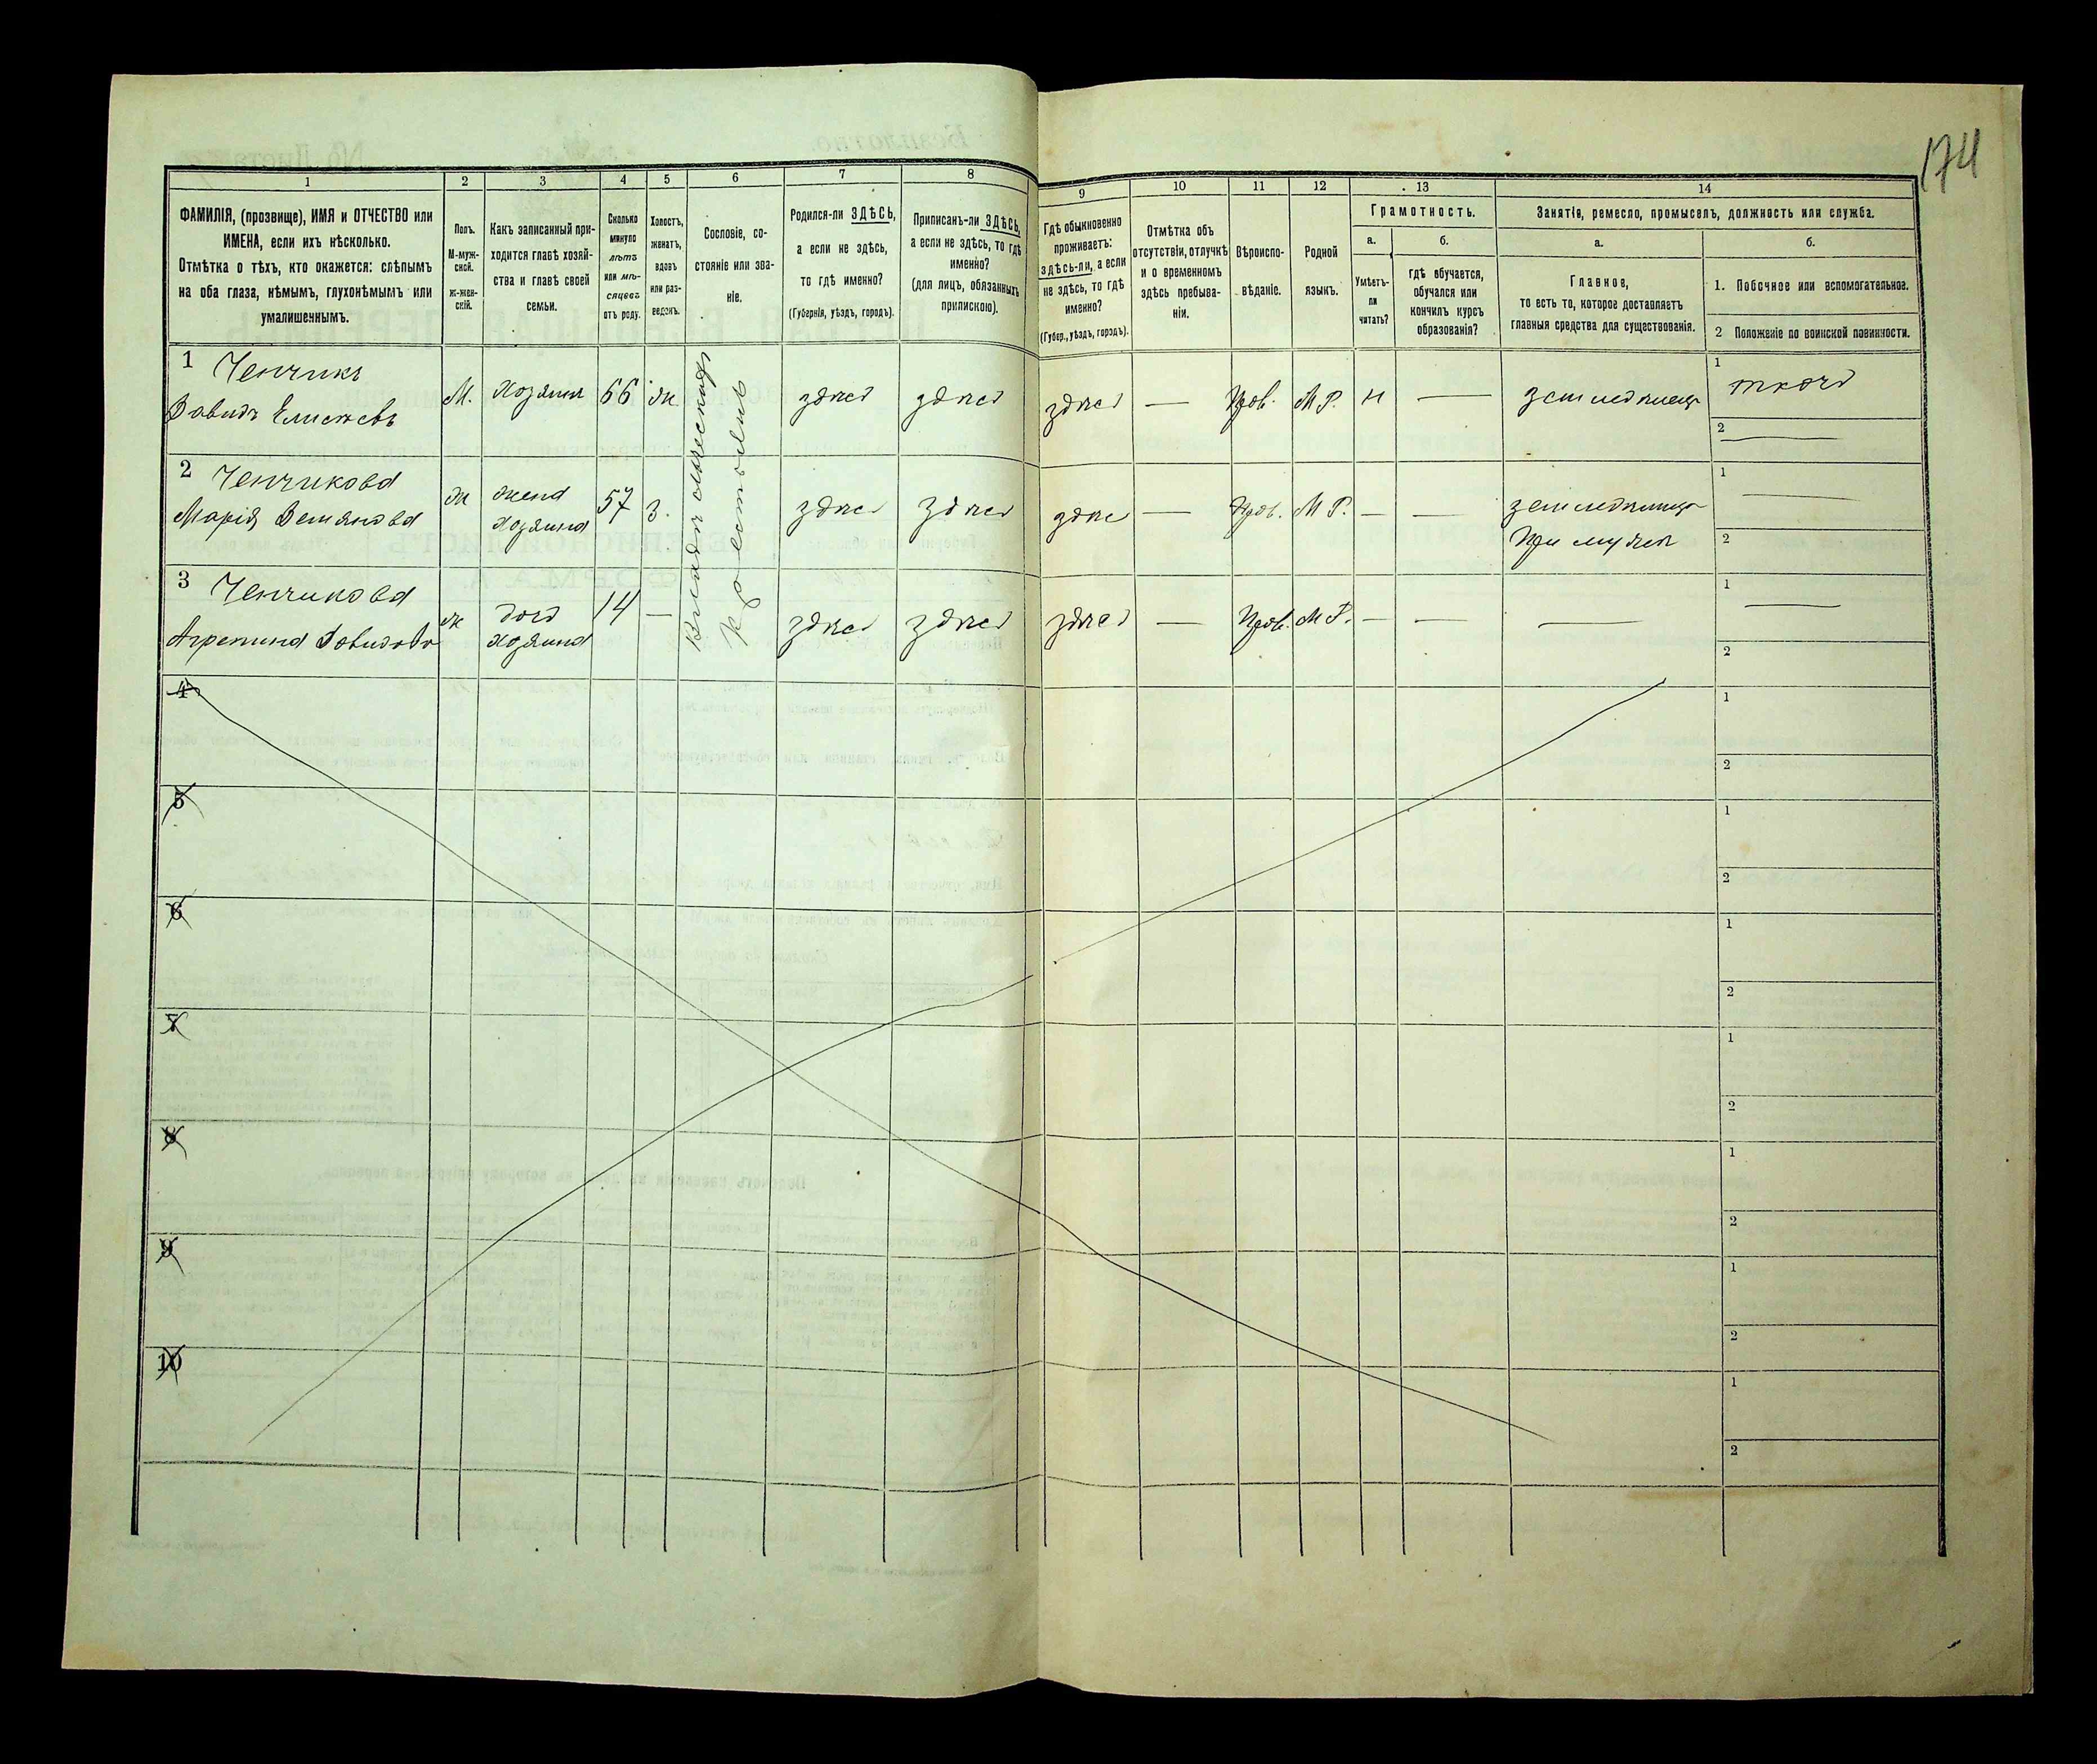 174
1
2
3
4
5
6
7
8
9
10
11
12
13
14
ФАМИЛІЯ, (прозвище), ИМЯ и ОТЧЕСТВО или
ИМЕНА, если ихъ нѣсколько.
Отмѣтка о тѣхъ, кто окажется: слѣпымъ
на оба глаза, нѣмымъ, глухонѣмымъ или
умалишеннымъ.
Полъ.
М-муж-
ской.
Ж-жен-
скій.
Какъ записанный при-
ходится главѣ хозяй-
ства и главѣ своей
семьи.
Сколько
минуло
лѣтъ
или мѣ-
сяцевъ
отъ роду.
Холостъ,
женатъ,
вдовъ
или раз-
веденъ.
Сословіе, со-
стояніе или зва-
ніе.
Родился-ли ЗДѢСЬ,
а если не здѣсь,
то гдѣ именно?
(Губернія, уѣздъ, городъ).
Приписанъ-ли ЗДѢСЬ,
а если не здѣсь, то гдѣ
именно?
(для лицъ, обязанныхъ
припискою).
Гдѣ обыкновенно
проживаетъ:
здѣсь-ли, а если
не здѣсь, то гдѣ
именно?
(Губер., уѣздъ, городъ).
Отмѣтка объ
отсутствіи, отлучкѣ
и о временномъ
здѣсь пребыва-
ніи.
Вѣроиспо-
вѣданіе.
Родной
языкъ.
Грамотность.
а.
Умѣетъ-
ли
читать?
б.
гдѣ обучается,
обучался или
кончилъ курсъ
образованія?
Занятіе, ремесло, промыселъ, должность или служба.
а.
Главное,
то есть то, которое доставляетъ
главныя средства для существованія.
б.
1. Побочное или вспомогательное.
2 Положеніе по воинской повинности.
1 Ченчикъ
Давидъ
М. Хозяинъ 66 ж.
здѣсь здѣсь здѣсь — Прав. М Р. н —
1
2 —
2 Ченчикова
Марія
ж жена
хозяина
57 з. здѣсь здѣсь здѣсь — Прав. М Р. — —
при мужѣ
1 —
2
3 Ченчикова
Агрепина
ж дочь
хозяина
14 — здѣсь здѣсь здѣсь — Прав. М Р. — — —
1 —
2
Крестьянъ
4
1
2
5
1
2
6
1
2
7
1
2
8
1
2
9
1
2
10
1
2